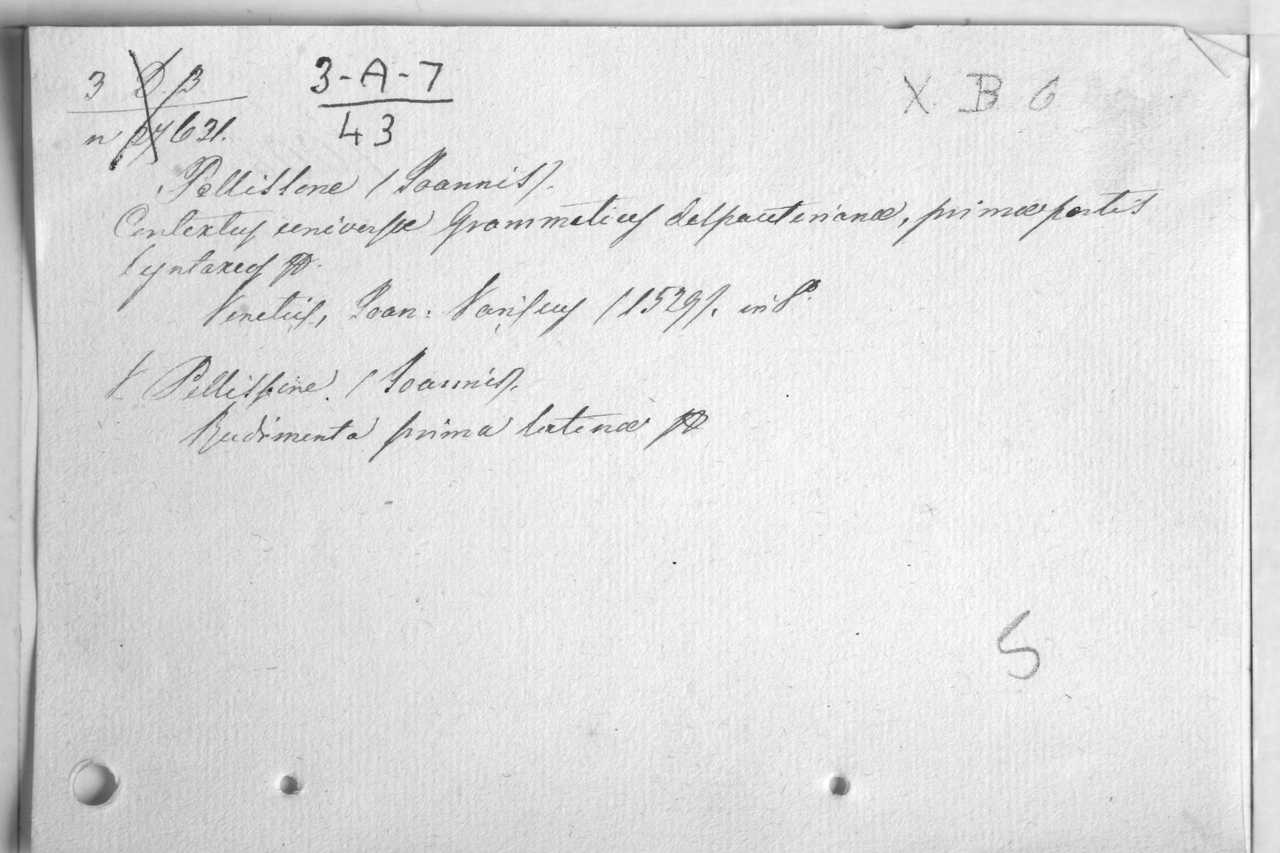 3 D. B 3-A-7 X B 6
n 27631. 43
Pellissone (Joannis).
Contextus universæ Grammatices despauterianæ, primæ partis
Syntaxeos
Venetiis, Joan: Variscus (1529). in 8º
Pellissone (Joannis).
Rudimenta prima latinæ
S